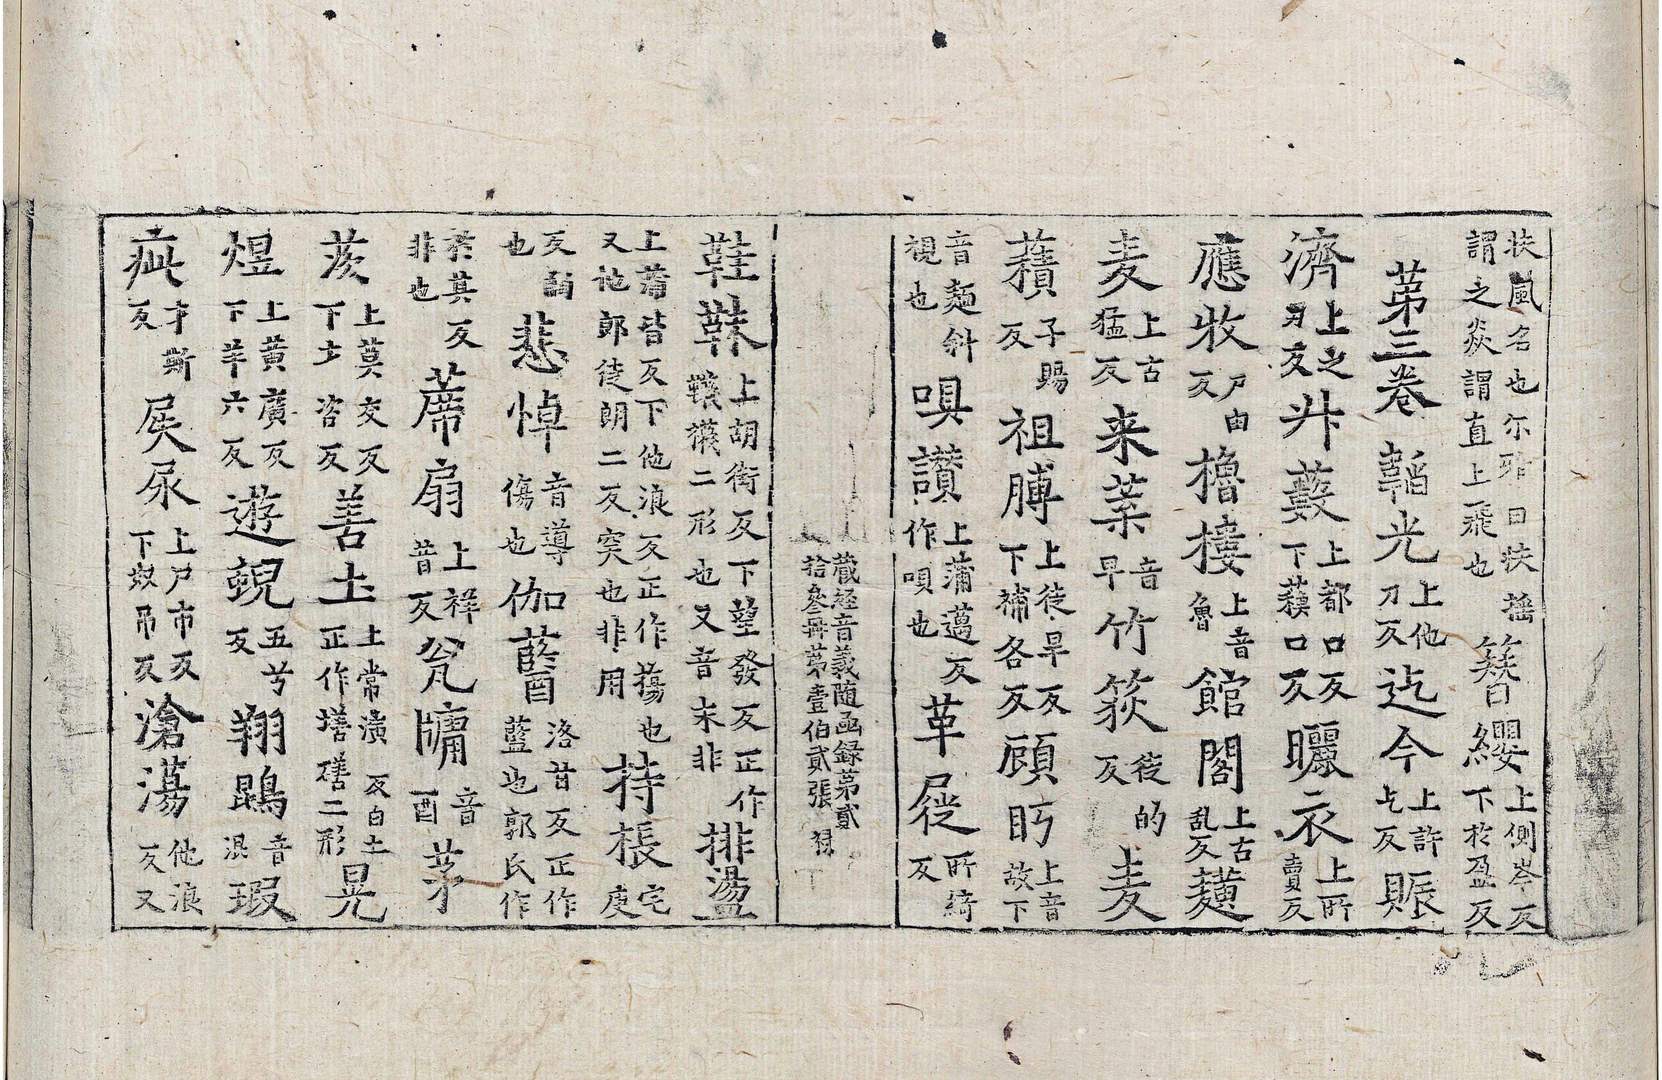 扶風名也尒疋曰扶搖謂之猋謂直上飛也簪纓上側岑反下於盈反
第三卷 韜光上他刀反迄今上許乞反賑
濟上之刃反斗藪上都口反下䕯口反曬衣上所賣反
應收尸由反櫓樓上音魯館閣上古乱反䵃
麦上古猛反来葉音早竹荻徒的反麦
䕆子賜反祖膊上徒旱反下補各反顧眄上音故下
音麵斜視也唄讃上蒲邁反作唄也革屣所綺反
藏經音義隨函録第貳拾參冊第壹伯貳張
鞋韈上胡街反下望發反正作韤襪二形也又音末非排盪
上蒲皆反下他浪反正作蕩也又他郎徒朗二反突也非用持棖宅庚
反 悲悼音導傷也伽藍洛甘反正作藍也郭氏作
非也 蓆扇上祥昔反瓮牖音酉茅
茨上莫交反下才咨反善土上常演反白土正作墡磰二形晃
煜上黄廣反下羊六反遊覬五兮反翔鵾音混瑕
疵才斯反屎尿上尸市反下奴吊反滄蕩他浪反又